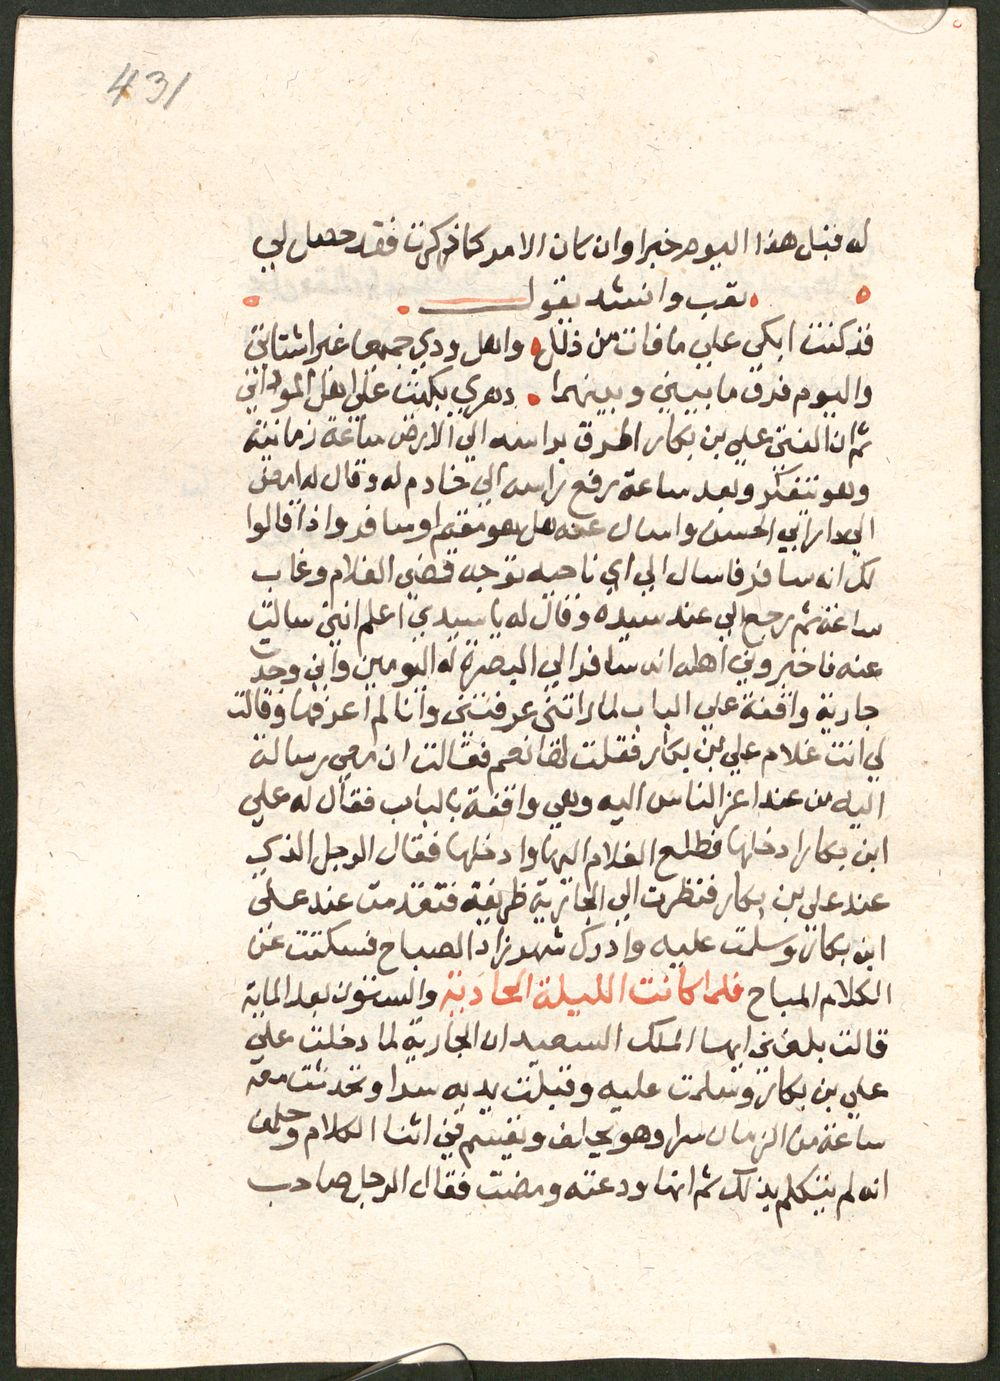 431
له قبل هذا اليوم خبرا وان كان الامر كما ذكرت فقد حصل لي
تعب وانشد يقول
قد كنت ابكي علي ما فات من زللي واهل ودي جميعا غير اشتات
واليوم فرق ما بيني وبينهما دهري بكيت علي اهل المودات
ثم ان الفتي علي بن بكار اطرق براسه الي الارض ساعة زمانية
وهو يتفكر وبعد ساعة رفع راسه الي خادم له وقال له امض
الي دار ابي الحسن واسال عنه هل هو مقيم او سافر واذا قالوا
لك انه سافر فاسال الي اي ناحيه توجه فمضي الغلام وغاب
ساعة ثم رجع الي عند سيده وقال له يا سيدي اعلم انني سالت
عنه فاخبروني اهله انه سافر الي البصرة له اليومين واني وجدت
جارية واقفة علي الباب لما راتني عرفتني وانا لم اعرفها وقالت
لي انت غلام علي بن بكار فقلت لها نعم فقالت ان معي رسالة
اليه من عند اعز الناس اليه وهي واقفة بالباب فقال له علي
ابن بكار ادخلها فطلع الغلام اليها وادخلها فقال الرجل الذي
عند علي بن بكار فنظرت الي الجارية ظريفة فتقدمت عند علي
ابن بكار وسلمت عليه وادرك شهرزاد الصباح فسكتت عن
الكلام المباح فلما كانت الليلة الحادية والستون بعد الماية
قالت بلغني ايها الملك السعيد ان الجارية لما دخلت علي
علي بن بكار وسلمت عليه وقبلت يديه سرا وتحدثت معه
ساعة من الزمان سرا وهو يحلف ويقسم في اثنا الكلام وحلف
انه لم يتكلم بذلك ثم انها ودعته ومضت فقال الرجل صاحب